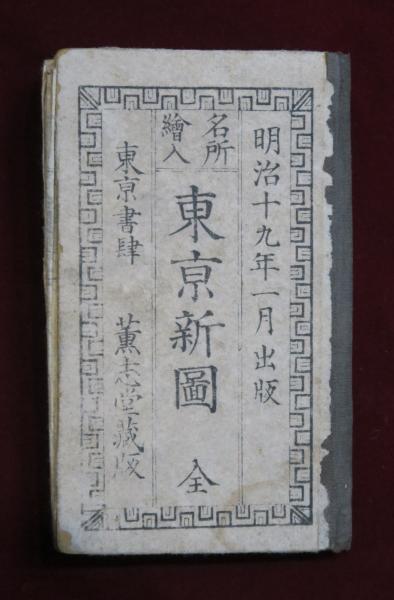 明治十九年一月出版
名所
繪入
東京新圖 全
東京書肆 薫志堂藏版